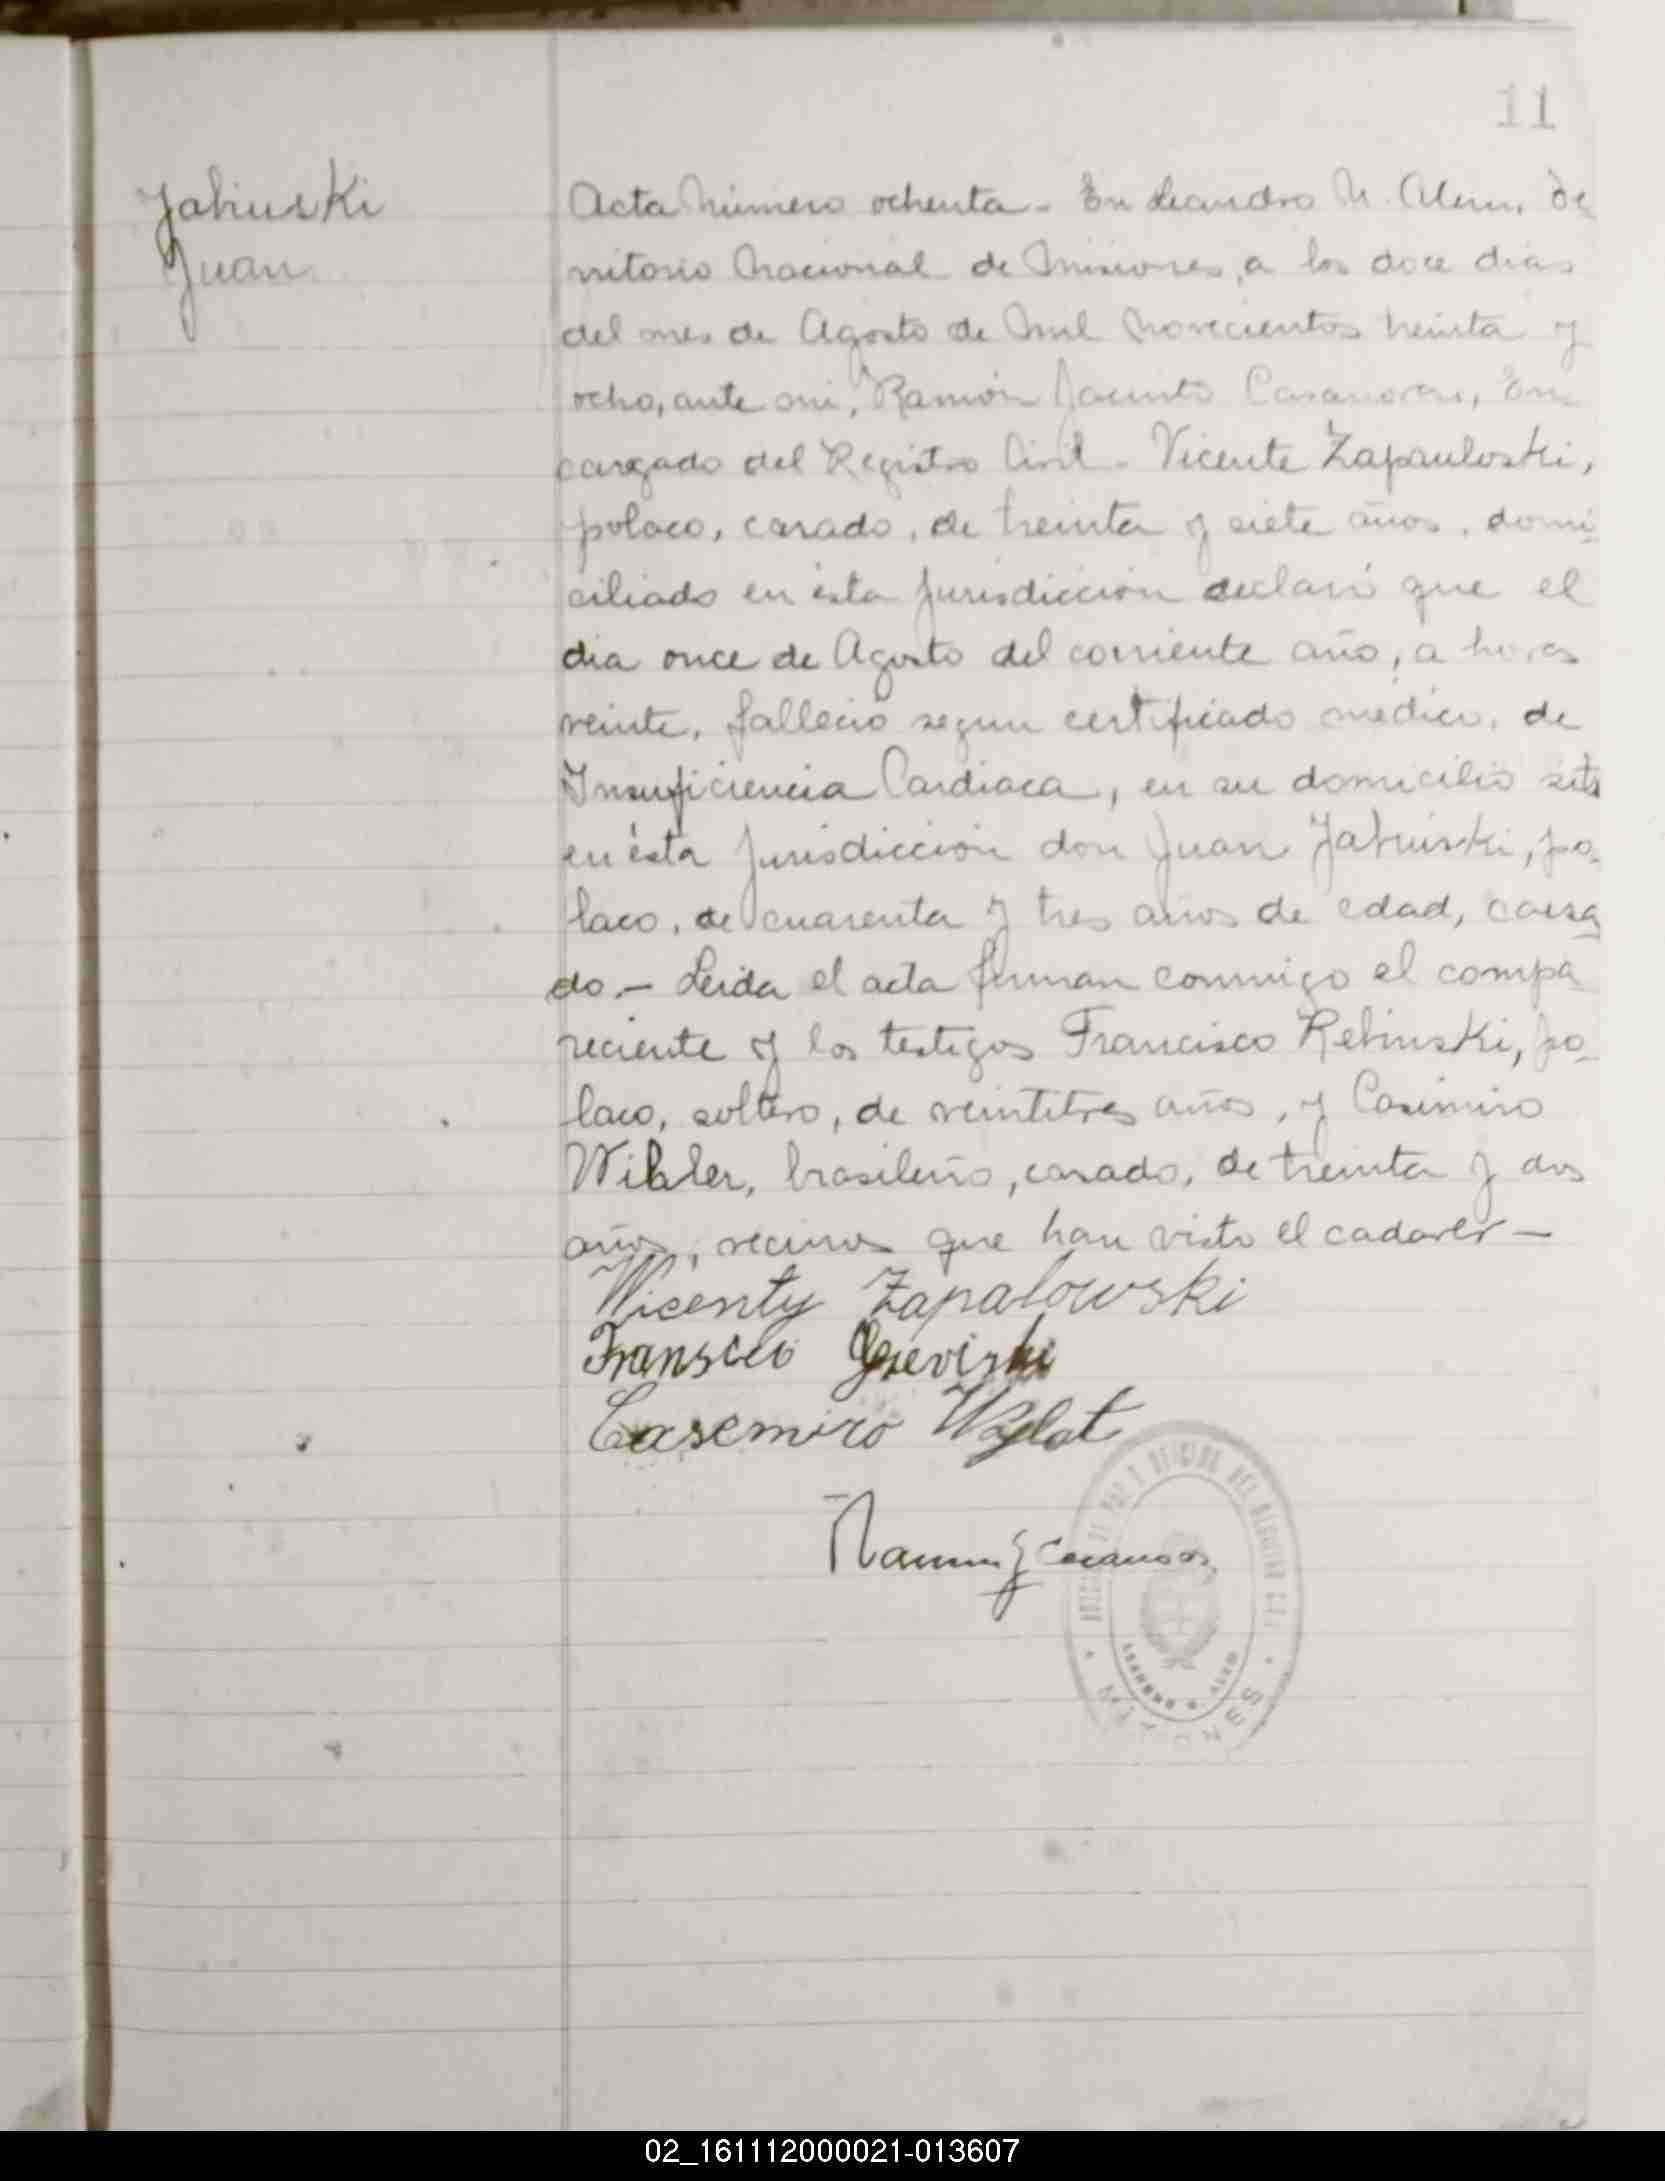 11
Jabinski
Juan
Acta Número ochenta - En Leandro N. Alem, Te
rritorio Nacional de Misiones, a los doce dias
del mes de Agosto de Mil Novecientos treinta y
ocho, ante mi, Ramón Jacinto Casanova, En
cargado del Registro Civil - Vicente Zapauloski,
polaco, casado, de treinta y siete años, domi-
ciliado en ésta Jurisdicción declaró que el
dia once de Agosto del corriente año, a horas
veinte, fallecio segun certificado médico, de
Insuficiencia Cardiaca, en su domicilio sito
en ésta Jurisdicción don Juan Jabinski, po-
laco, de cuarenta y tres años de edad, casa
do.- Leida el acta firman conmigo el compa
reciente y los testigos Francisco Rebinski, po-
laco, soltero, de veintitres años, y Casimiro
Wibler, brasileño, casado, de treinta y dos
años, vecinos que han visto el cadaver -
Wicenty Zapalowski
Casemiro
Ramon J Casanova
JUZGADO DE PAZ Y OFICINA DEL REGISTRO CIVIL
LEANDRO N. ALEM
MISIONES
02_161112000021-013607